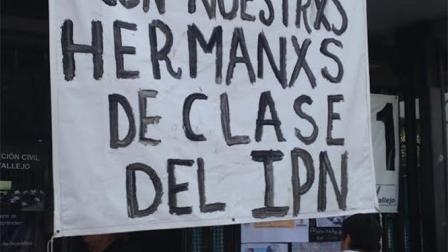 CON NUESTRXS
HERMANXS
DE CLASE
DEL IPN
CIÓN CIVIL
VALLEJO
1
allejo